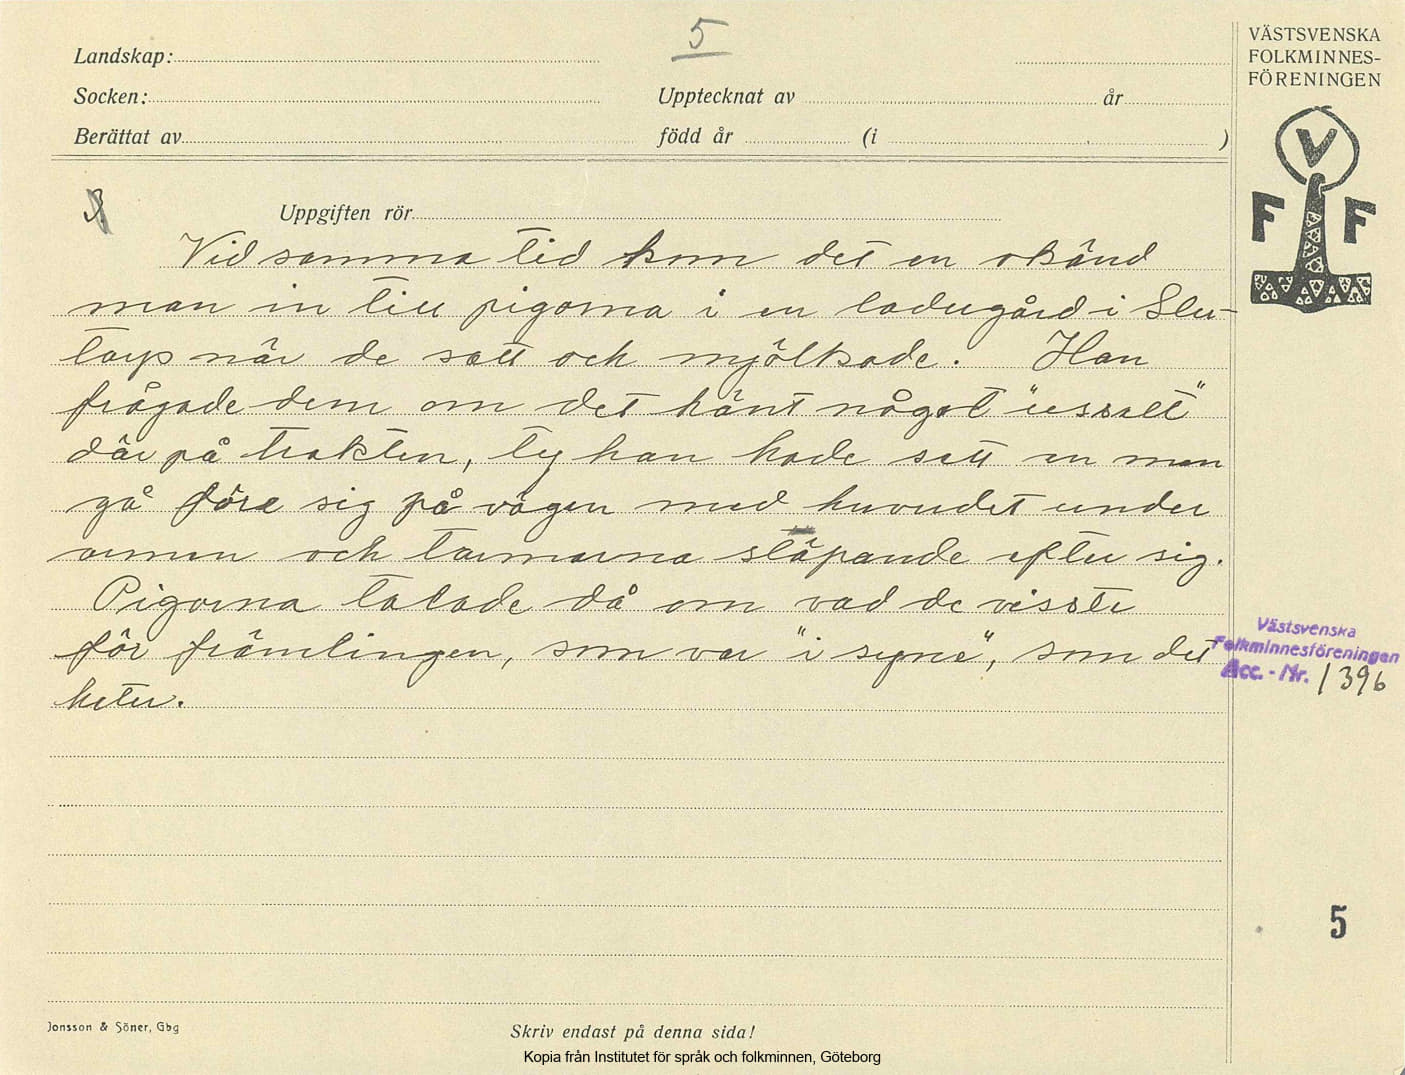 5
Landskap:
Socken:
Upptecknat av år
Berättat av född år (i )
VÄSTSVENSKA
FOLKMINNES-
FÖRENINGEN
V
F F
3.
Uppgiften rör
Vid samma tid kom det en okänd
man in till pigorna i en ladugård i Slu-
tarp när de satt och mjölkade. Han
frågade dem om det hänt något "ussalt"
där på trakten, ty han hade sett en man
gå före sig på vägen med huvudet under
armen och tarmarna släpande efter sig.
Pigorna talade då om vad de visste
för främlingen, som var "i syne", som det
heter.
Västsvenska
Folkminnesföreningen
Acc. - Nr. 1396
5
Jonsson & Söner, Gbg
Skriv endast på denna sida!
Kopia från Institutet för språk och folkminnen, Göteborg